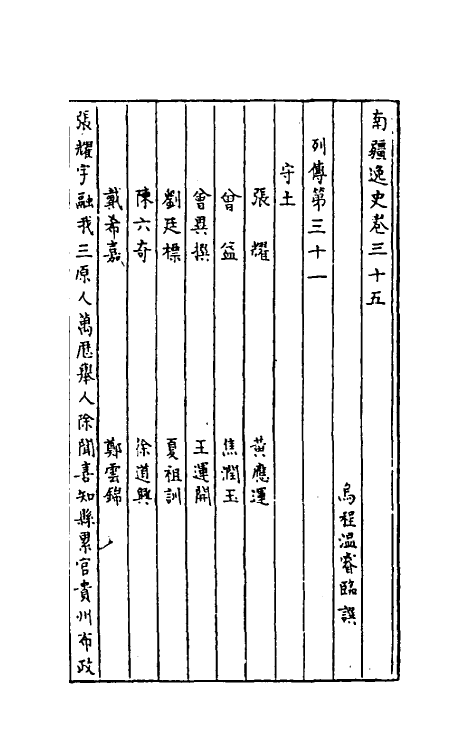 南疆逸史卷三十五
烏程溫睿臨譔
列傳第三十一
守土
張耀 黃應運
曾益 焦潤玉
曾異撰 王運開
劉廷標 夏祖訓
陳六奇 徐道興
戴希嘉 鄭雲錦
張耀字融我三原人萬曆舉人除聞喜知縣累官貴州布政